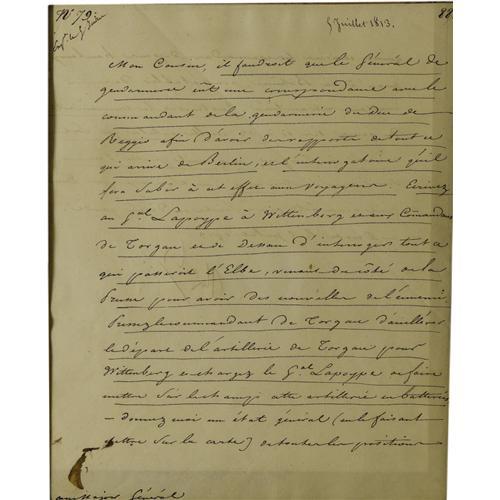 Nº 79.
5 Juillet 1813.
88.
Mon Cousin, il faudroit que le Général de
gendarmerie eût une correspondance avec le
commandant de la gendarmerie du Duc de
Reggio afin d'avoir des rapports de tout ce
qui arrive de Berlin, et l'interrogatoire qu'il
fera Subir à cet effet aux voyageurs. Ecrivez
au Gal Lapoype à Wittenberg et aux Comandans
de Torgau et de Dessau d'interroger tout ce
qui passeroit l'Elbe, venant du côté de la
Prusse pour avoir des nouvelles de l'ennemi.
Pressez le commandant de Torgau d'accélérer
le départ de l'artillerie de Torgau pour
Wittenberg et chargez le Gal Lapoype de faire
mettre Sur le champ cette artillerie en batteries
- donnez moi un état général (en le faisant
mettre Sur la carte) de toutes les positions
au Major Général